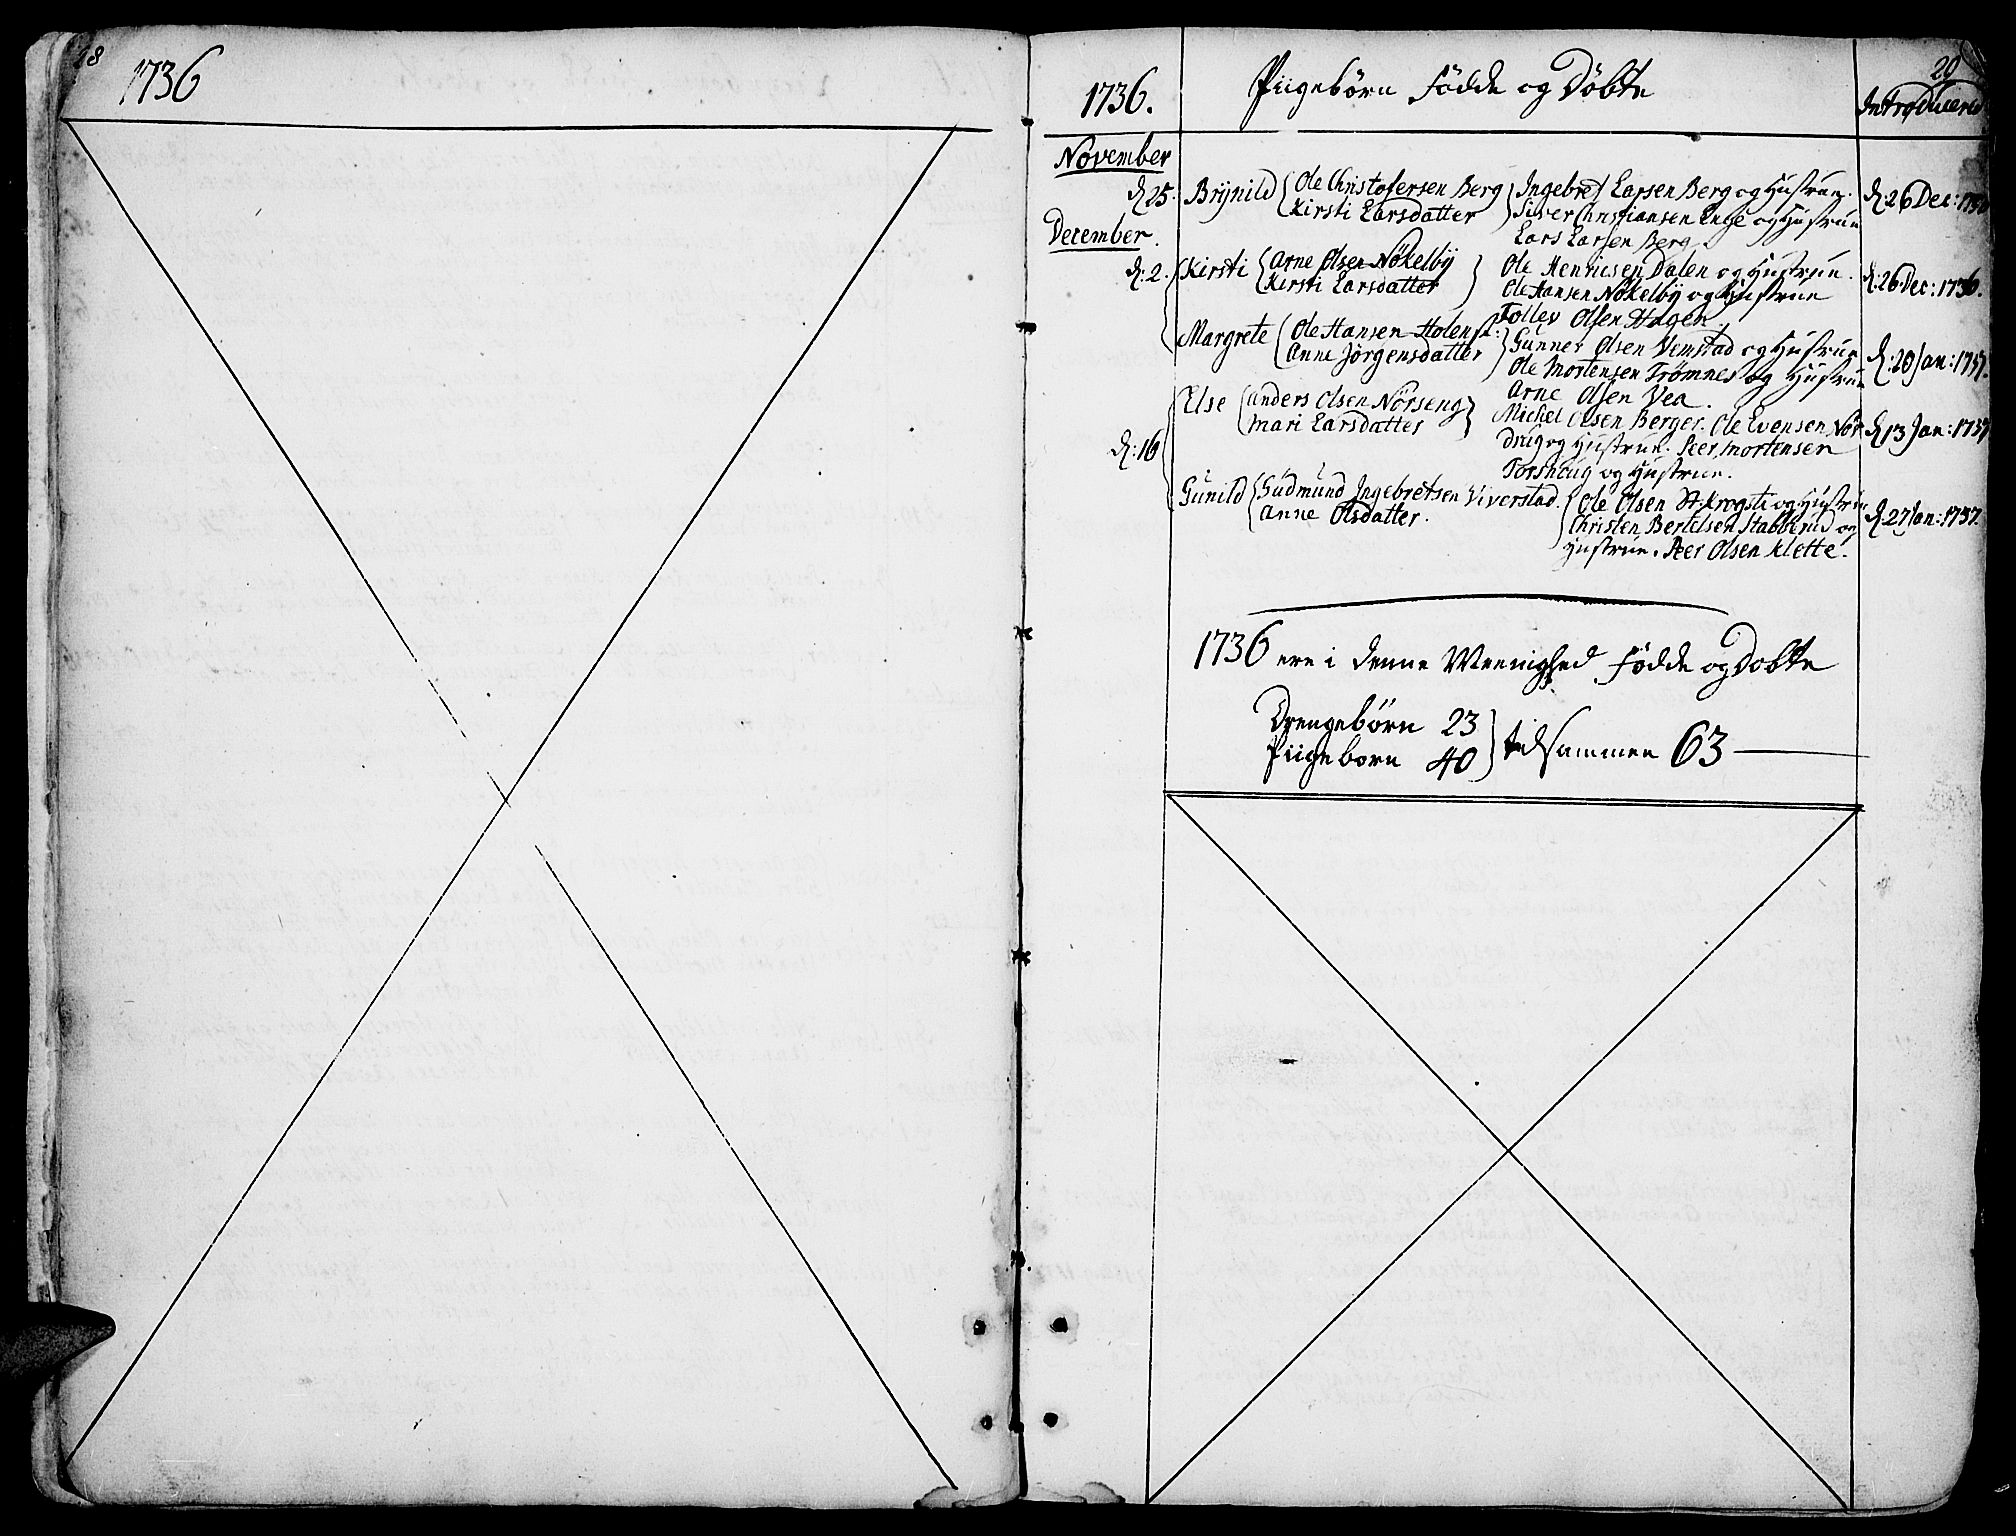 28
1736
1736.
Piigebörn Födde og Döbte
29
Introducered
November
d. 25. Brÿnild Ole Christofersen Berg Ingebret Larsen Berg og Hustrue. d. 26 Dec: 1736
Kirsti Larsdatter Siver Christiansen Enge og Hustrue
December. Lars Larsen Berg
d: 2. Kirsti Arne Olsen Nökelbÿ Ole Henricsen Dalen og Hustrue. d. 26 Dec: 1736.
Kirsti Larsdatter Ole Hansen Nökelbÿ og Hustrue
Tollev Olsen Hagen
Margrete Ole Hansen Holenst: Gunner Olsen Vemstad og Hustrue d: 20 Jan: 1737.
Anne Jörgensdatter Ole Mortensen Trömnes og Hustrue
Arne Olsen Vea.
Else Anders Olsen Nörseng Michel Olsen Berger. Ole Evensen Nör d 13 Jan: 1737
Mari Larsdatter drug og Hustrue. Peer Mortensen
d: 16 Torshaug og Hustrue.
Gunild Gudmund Ingebretsen Viverstad. Ole Olsen St. Krogsti og Hustrue d. 27 Jan: 1737.
Anne Olsdatter. Christen Bertelsen Stabberud og
Hustrue. Peer Olsen Klette.
1736 ere i denne Meenighed Födde og Dobte
Drengebörn 23
Piigeborn 40 tilsammen 63